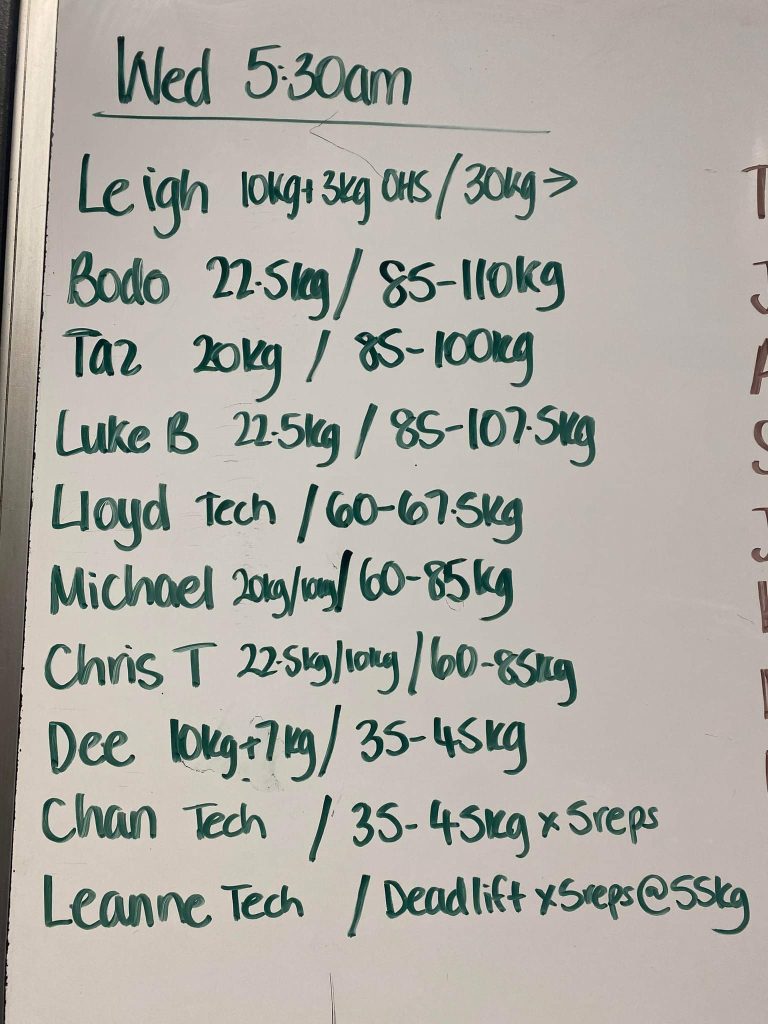 Wed 5:30am
Leigh 10kg+3kg OHS/30kg→
Bodo 22.5kg/85-110kg
Taz 20kg / 85-100kg
Luke B 22.5kg / 85-107.5kg
Lloyd Tech /60-67.5kg
Michael 20kg/10kg/60-85kg
Chris T 22.5kg/10kg/60-85kg
Dee 10kg+7kg/35-45kg
Chan Tech / 35-45kg x5reps
Leanne Tech / Deadlift x5reps@55kg